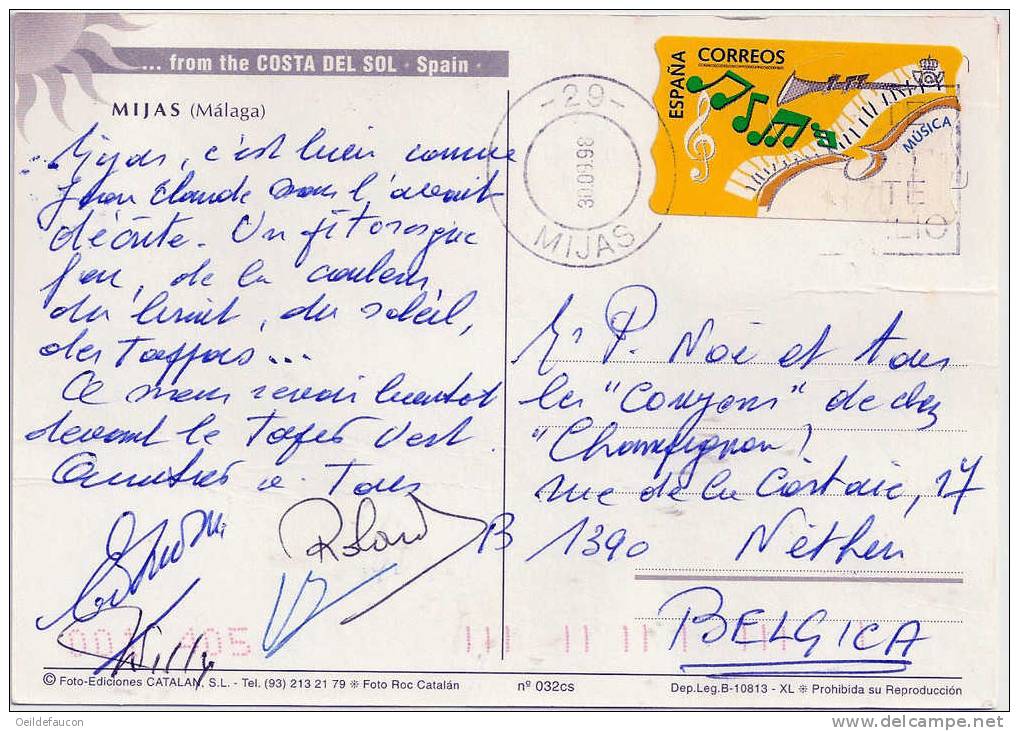 ... from the COSTA DEL SOL · Spain ·
MIJAS (Málaga)
Mijas, c'est bien comme
Jean Claude nous l'avait
décrite. Un pittoresque
fou, de la couleur,
du bruit, du soleil,
des Tappas...
devant le Tapis Vert.
Amitiés à Tous
Roland
Willy
ESPAÑA
CORREOS
MÚSICA
-29-
30.09.98
MIJAS
TÉ
LIO
Mr P. Noë et tous
les "Couyons" de chez
"Champignon"
rue de la 17
B 1390 Néthen
BELGICA
405
© Foto-Ediciones CATALAN, S.L. - Tel. (93) 213 21 79 ❊ Foto Roc Catalán
nº 032cs
Dep.Leg.B-10813 - XL ❊ Prohibida su Reproducción
Oeildefaucon
www.delcampe.net